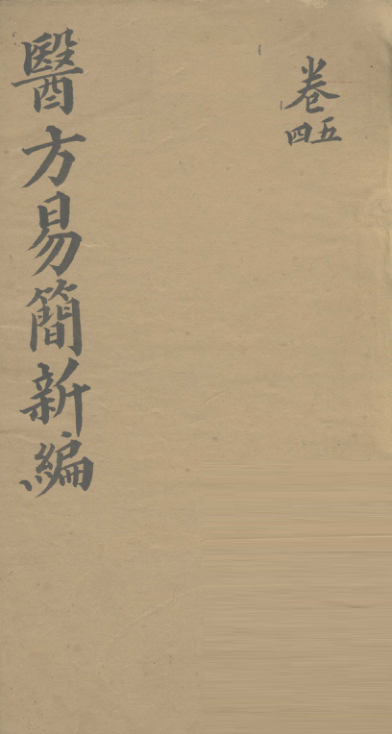 卷
四五
醫方易簡新編